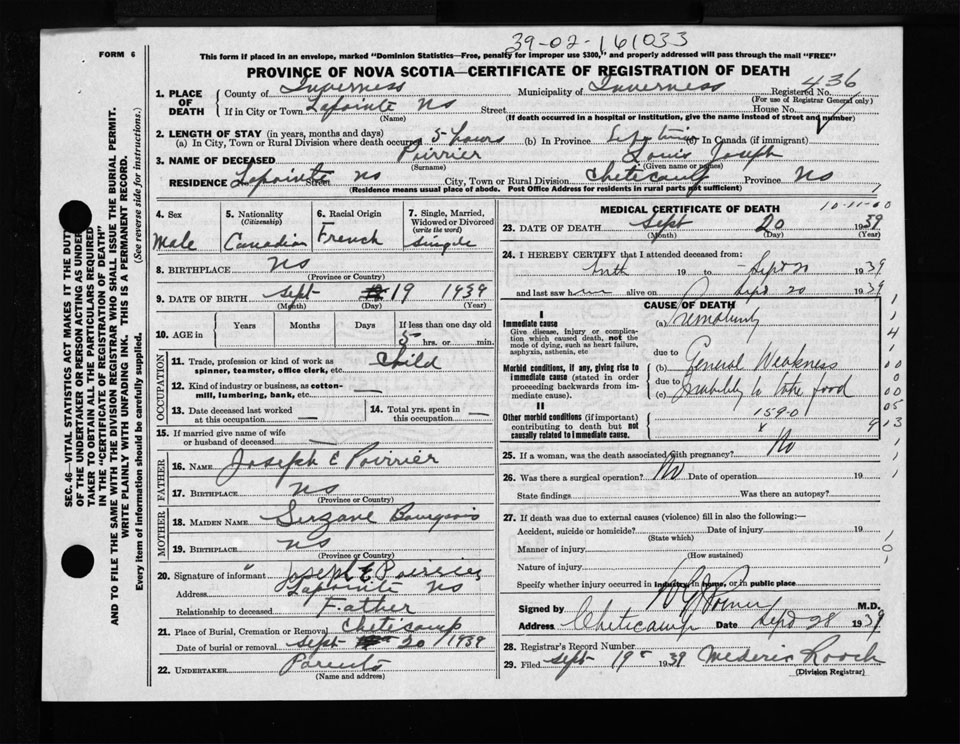 39-02-161033
FORM 6
This form if placed in an envelope, marked "Dominion Statistics—Free, penalty for improper use $300," and properly addressed will pass through the mail "FREE"
PROVINCE OF NOVA SCOTIA—CERTIFICATE OF REGISTRATION OF DEATH
1. PLACE OF DEATH
County of Inverness Municipality of Inverness Registered No. 436
(For use of Registrar General only)
If in City or Town Lapointe NS Street House No.
(Name) (If death occurred in a hospital or institution, give the name instead of street and number)
2. LENGTH OF STAY (in years, months and days)
(a) In City, Town or Rural Division where death occurred 5 hours (b) In Province (c) In Canada (if immigrant)
3. NAME OF DECEASED Poirrier Louis Joseph
(Surname) (Given name or names)
RESIDENCE Lapointe Street NS City, Town or Rural Division Cheticamp Province NS
(Residence means usual place of abode. Post Office Address for residents in rural parts not sufficient)
4. Sex
Male
5. Nationality
(Citizenship)
Canadian
6. Racial Origin
French
7. Single, Married, Widowed or Divorced
(write the word)
Single
8. BIRTHPLACE NS
(Province or Country)
9. DATE OF BIRTH Sept 19 1939
(Month) (Day) (Year)
10. AGE in
Years Months Days If less than one day old
5 hrs. or min.
OCCUPATION
11. Trade, profession or kind of work as spinner, teamster, office clerk, etc. Child
12. Kind of industry or business, as cotton-mill, lumbering, bank, etc. —
13. Date deceased last worked at this occupation —
14. Total yrs. spent in this occupation —
15. If married give name of wife or husband of deceased —
FATHER
16. NAME Joseph E Poirrier
17. BIRTHPLACE NS
(Province or Country)
MOTHER
18. MAIDEN NAME Suzane Bourgeois
19. BIRTHPLACE NS
(Province or Country)
20. Signature of informant Joseph E Poirrier
Address Lapointe NS
Relationship to deceased Father
21. Place of Burial, Cremation or Removal Cheticamp
Date of burial or removal Sept 20 1939
22. UNDERTAKER Parents
(Name and address)
MEDICAL CERTIFICATE OF DEATH
10-11-00
23. DATE OF DEATH Sept 20 1939
(Month) (Day) (Year)
24. I HEREBY CERTIFY that I attended deceased from:
birth 19 to Sept 20 1939
and last saw him alive on Sept 20 1939
CAUSE OF DEATH
I
Immediate cause
Give disease, injury or complication which caused death, not the mode of dying, such as heart failure, asphyxia, asthenia, etc
(a) Prematurity
due to
Morbid conditions, if any, giving rise to immediate cause (stated in order proceeding backwards from immediate cause).
(b) General Weakness
due to
(c) Inability to take food
II
Other morbid conditions (if important) contributing to death but not causally related to immediate cause.
159.0
25. If a woman, was the death associated with pregnancy? No
26. Was there a surgical operation? No Date of operation 19
State findings Was there an autopsy?
27. If death was due to external causes (violence) fill in also the following:—
Accident, suicide or homicide? Date of injury 19
(State which)
Manner of injury
(How sustained)
Nature of injury
Specify whether injury occurred in industry, in home, or in public place
Signed by M.D.
Address Cheticamp Date Sept 28 1939
28. Registrar's Record Number
29. Filed Sept 19 1939 Mederic Roach
(Division Registrar)
SEC. 46—VITAL STATISTICS ACT MAKES IT THE DUTY OF THE UNDERTAKER OR PERSON ACTING AS UNDERTAKER TO OBTAIN ALL THE PARTICULARS REQUIRED IN THE "CERTIFICATE OF REGISTRATION OF DEATH" AND TO FILE THE SAME WITH THE DIVISION REGISTRAR WHO SHALL ISSUE THE BURIAL PERMIT.
WRITE PLAINLY WITH UNFADING INK. THIS IS A PERMANENT RECORD.
Every item of information should be carefully supplied. (See reverse side for instructions.)